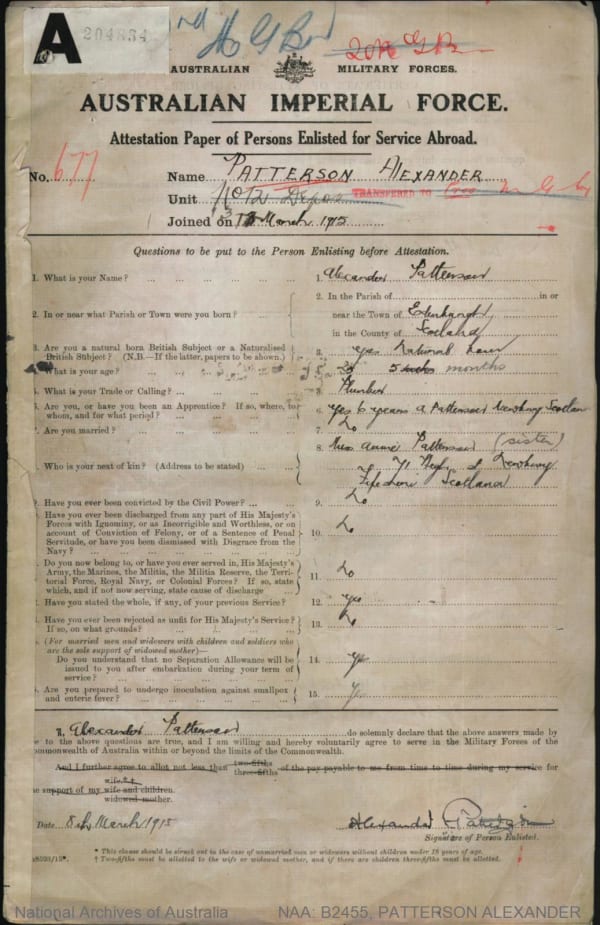 A 204834
AUSTRALIAN MILITARY FORCES.
AUSTRALIAN IMPERIAL FORCE.
Attestation Paper of Persons Enlisted for Service Abroad.
No. 677
Name PATTERSON ALEXANDER
Unit
TRANSFERRED TO
Joined on March 1915
Questions to be put to the Person Enlisting before Attestation.
1. What is your Name? 1. Alexander Patterson
2. In or near what Parish or Town were you born? 2. In the Parish of in or
near the Town of Edinburgh
in the County of Scotland
3. Are you a natural born British Subject or a Naturalised
British Subject? (N.B.—If the latter, papers to be shown.) 3. yes
What is your age? 5 months
What is your Trade or Calling? 5. Plumber
Are you, or have you been an Apprentice? If so, where, to
whom, and for what period? 6. yes 6 years a Patterson Scotland
Are you married? 7. No
8. Miss Annie Patterson (sister)
Who is your next of kin? (Address to be stated)
Scotland
Have you ever been convicted by the Civil Power? 9. No
Have you ever been discharged from any part of His Majesty's
Forces with Ignominy, or as Incorrigible and Worthless, or on
account of Conviction of Felony, or of a Sentence of Penal
Servitude, or have you been dismissed with Disgrace from the
Navy? 10. No
Do you now belong to, or have you ever served in, His Majesty's
Army, the Marines, the Militia, the Militia Reserve, the Terri-
torial Force, Royal Navy, or Colonial Forces? If so, state
which, and if not now serving, state cause of discharge 11. No
Have you stated the whole, if any, of your previous Service? 12. yes
Have you ever been rejected as unfit for His Majesty's Service?
If so, on what grounds? 13. No
(For married men and widowers with children and soldiers who
are the sole support of widowed mother)—
Do you understand that no Separation Allowance will be
issued to you after embarkation during your term of
service? 14. yes
Are you prepared to undergo inoculation against smallpox
and enteric fever? 15.
I, Alexander Patterson do solemnly declare that the above answers made by
to the above questions are true, and I am willing and hereby voluntarily agree to serve in the Military Forces of the
Commonwealth of Australia within or beyond the limits of the Commonwealth.
And I further agree to allot not less than two-fifths three-fifths of the pay payable to me from time to time during my service for
support of my wife wife and children. widowed mother.
Date 8th March 1915 Alexander Patterson
Signature of Person Enlisted.
* This clause should be struck out in the case of unmarried men or widowers without children under 18 years of age.
† Two-fifths must be allotted to the wife or widowed mother, and if there are children three-fifths must be allotted.
National Archives of Australia NAA: B2455, PATTERSON ALEXANDER